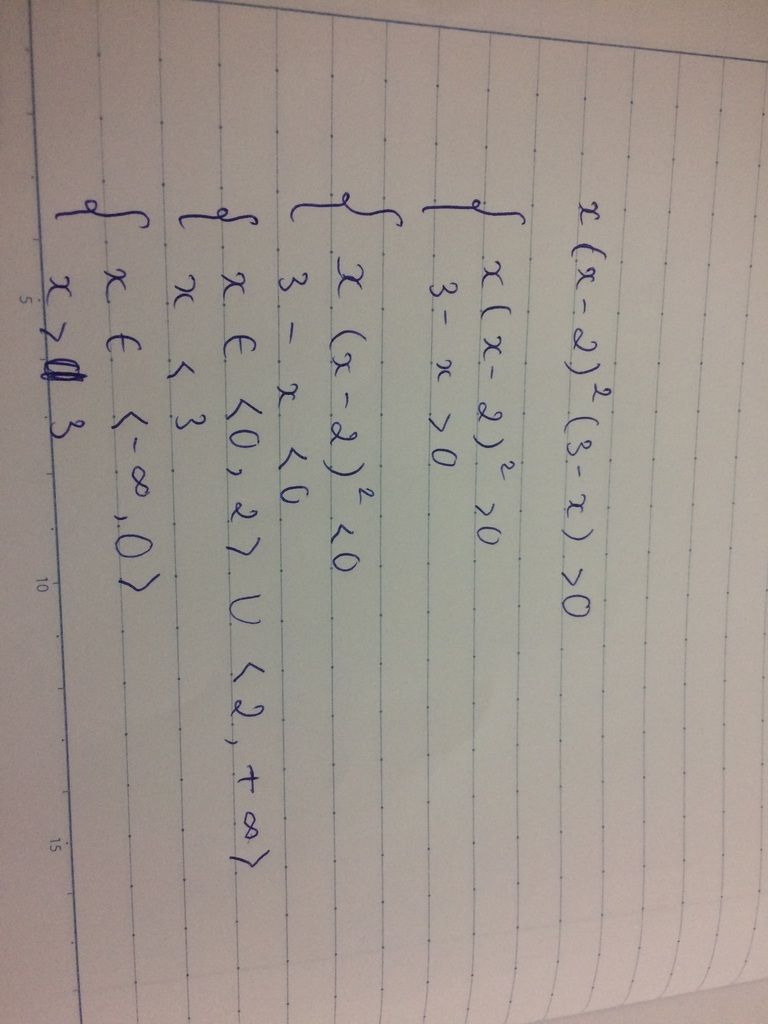 x(x-2)²(3-x)>0
{ x(x-2)²>0
3-x>0
{ x(x-2)²<0
3-x<0
{ x ∈ <0,2> ∪ <2,+∞>
x < 3
{ x ∈ <-∞,0>
x > 3
5 10 15